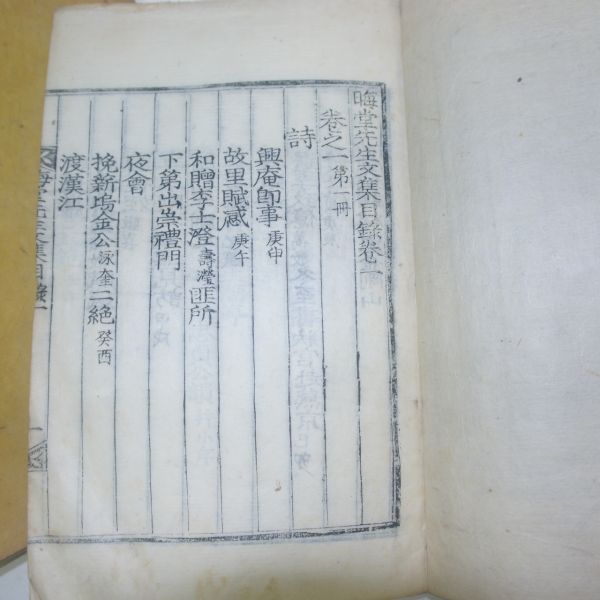 晦堂先生文集目錄卷一
卷之一 第一冊
詩
興庵卽事 庚申
故里賦感 庚午
和贈李士澄 壽瀅 匪所
下第出崇禮門
夜會
挽新塢金公 泳奎 二絶 癸酉
渡漢江
先生文集目錄